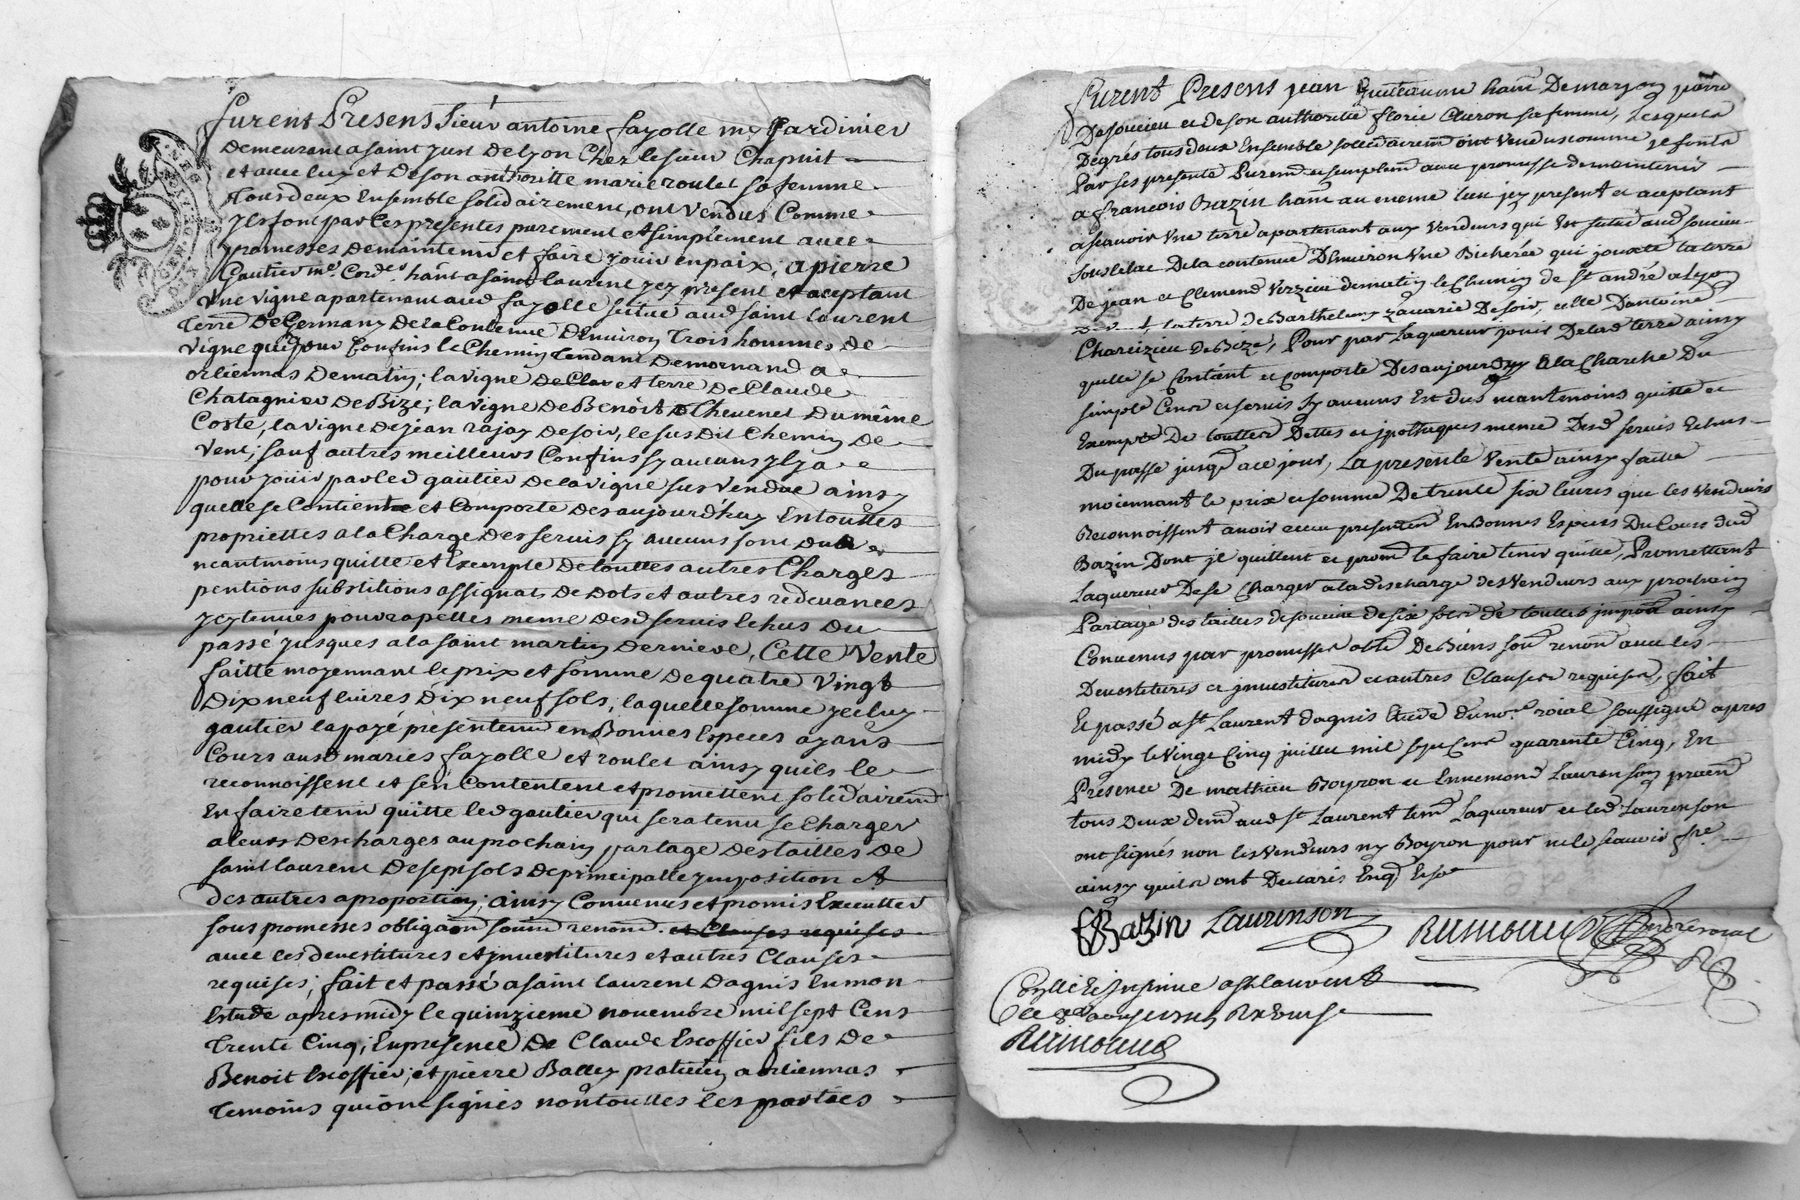 furent Presens Sieur antoine fayolle me Jardinier
demeurant a saint Just de lyon Chez le sieur Chapuit
et avec luy et de son authoritte marie roulet sa femme
Tous deux Ensemble solidairement, ont vendus Comme
Ils font par les presentes purement et simplement avec
promesses de maintenir et faire jouir en paix, a pierre
Gautier me. Cord.r hânt a saint laurent icy present et aceptant
Une vigne apartenant aud fayolle située aud saint laurent
Terre de Germany de la Contenue denviron Trois hommes de
vigne qui Joue Confins le Chemin tendant de mornand a
orliennas de matin; la vigne de Clav et terre de Claude
Chatagnier de Bize; la vigne de Benoit Thevenet du même
Coste, la vigne de jean rajay de soir, le susdit Chemin de
vent; sauf autres meilleurs Confins sy aucuns y a
pour jouir par led gautier de la vigne sus vendue ainsy
quelle se Contient et Comporte des aujourdhuy En touttes
propriettes a la Charge des servis sy aucuns sont dubs
neantmoins quitte et Exempte de touttes autres Charges
pentions substitions assignats de dots et autres redevances
icy tenues pour apellés meme desd servis Echus du
passé jusques a la saint martin derniere, Cette Vente
faitte moyennant le prix et somme de quatre Vingt
Dix neuf livres Dix neuf sols, laquelle somme iceluy
gautier la payé presentemt en Bonnes Especes ayant
Cours ausd mariés fayolle et roulet ainsy quils le
reconnoissent et sen Contentent et promettent solidairemt
En faire tenir quitte led gautier qui sera tenu se Charger
a leurs descharges au prochain partage des tailles de
saint laurent de sept sols de principalle imposition et
des autres a proportion; ainsy Convenus et promis Executter
sous promesses obligaôn soumô renonô. et Clauses requises
avec les devestitures et investitures et autres Clauses
requises; fait et passé a saint laurent dagnis En mon
Estude apres midy le quinzieme novembre mil sept Cens
Trente Cinq; En presence de Claude Escoffier fils de
Benoit Escoffier; et pierre Balley praticien a orliennas
Temoins qui ont signés non touttes les parties
furent Presens jean Guilleaume hant De maryon parr
De soucieu et de son authorité florie Cluron sa femme, lesquels
De grés tous deux Ensemble solidairemt ont Vendus comme ils font
Par ses presente Puremt et simplemt avec promesse de maintenir
a francois Bazin hant au meme lieu icy present et aceptant
a scavoir Une terre apartenant aux Vendeurs qui Est située aud soucieu
De la contenue Denviron Une Bicherée qui jouxte la terre
De jean et Clemend Verzieu de matin le Chemin de St. andré a lyon
la terre de Barthelemy zacarie De soir, celle Dantoine
Chareizieu de Bize, Pour par Laquereur jouir De lad terre ainsy
quelle se Contient et Comporte Des aujourdhuy A la Charche Du
simple Cens et servis sy aucuns Est dus neantmoins quitte et
Exempte De touttes Dettes et ipotheques meme Desd servis Echus
Du passe jusqu a ce jour, La presente Vente ainsy faitte
moiennant le prix et somme De trente six livres que les Vendeurs
Reconnoissent avoir receu presentemt En Bonnes Especes Du Cours dud
Bazin Dont il quittent et promt le faire tenir quitte, Promettant
Laquereur De se Charger a la descharge des Vendeurs aux prochain
Partage des tailles de soucieu de six sols de touttes impôon ainsy
Convenus par promesse oblôn De Biens soum renonôn avec les
Devestitures et investitures et autres Clauses requises, fait
Et passé a St. Laurent dagnis Etude du nore. roial soussigné apres
midy le Vingt Cinq juillet mil sept Cent quarente Cinq, En
Presence De mathieu Boyron et Ennemond Laurenson
tous Deux demt aud St Laurent tem Laquereur et led Laurenson
ont signés non les Vendeurs ny Boyron pour ne le scavoir fre.
ainsy quils ont Declarés Enqs
f Bazin Laurenson